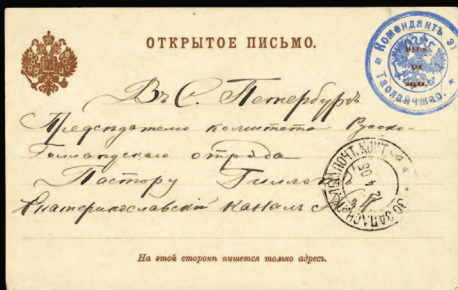 ОТКРЫТОЕ ПИСЬМО.
Комендантъ
Мѣсто
для
марки.
Въ С. Петербургъ
Председателю комитета Русско-
Голландского отряда
Пастору Гиллотъ
Екатерининославскiй каналъ
ЗАПАСН. ПОЧТ. КОНТ.
На этой сторонѣ пишется только адресъ.